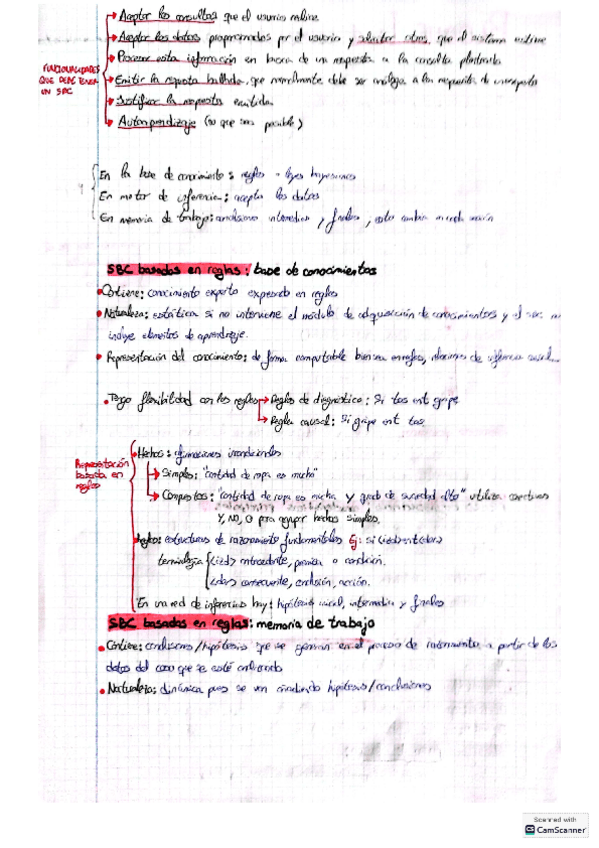 → Aceptar las consultas que el usuario realice
→ Aceptar los datos proporcionados por el usuario y solicitar otros, que el sistema estime
FUNCIONALIDADES QUE DEBE TENER UN SBC
→ Procesar esta información en busca de una respuesta a la consulta planteada
→ Emitir la respuesta hallada, que normalmente debe ser análoga a la
→ Justificar la respuesta emitida
→ Autoaprendizaje (si que sea posible)
En la base de conocimiento: reglas - leyes
En motor de inferencia: acepta los datos
En memoria de trabajo: conclusiones intermedias y finales, esto cambia
SBC basados en reglas: base de conocimientos
• Contiene: conocimiento experto expresado en reglas
• Naturaleza: estática si no interviene el módulo de adquisición de conocimientos y el SBC no
incluye elementos de aprendizaje.
• Representación del conocimiento: de forma computable bien sea en reglas, de inferencia
• Tengo flexibilidad con las reglas → Reglas de diagnóstico: Si tos ent gripe
→ Regla causal: Si gripe ent tos
Representación basada en reglas
• Hechos: afirmaciones incondicionales
→ Simples: "cantidad de ropa es mucha"
→ Compuestos: "cantidad de ropa es mucha y grado de suciedad alto" utiliza conectivas
Y, NO, O para agrupar hechos simples.
Reglas: estructuras de razonamiento fundamentales Ej: si
terminología antecedente, premisa o condición.
consecuente, conclusión, acción.
En una red de inferencias hay: hipótesis inicial, intermedia y finales
SBC basados en reglas: memoria de trabajo
• Contiene: conclusiones/hipótesis que se generan en el proceso de razonamiento a partir de los
datos del caso que se esté analizando
• Naturaleza: dinámica pues se van añadiendo hipótesis/conclusiones
Scanned with
CamScanner